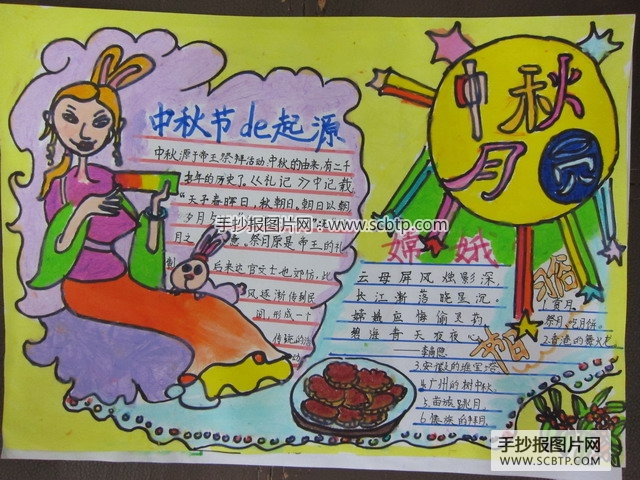 中秋月圆
中秋节de起源
中秋源于帝王祭拜活动,中秋的由来,有二千
多年的历史了。《礼记》中记载
“天子春朝日，秋朝日。朝日以朝
夕月
月之
祭月原是帝王的礼
制
后来达官文士也效仿，比
风逐渐传到民
间，形成一个
传统的活
手抄报图片网 www.scbtp.com
嫦娥
云母屏风烛影深,
长江渐落晓星沉。
嫦娥应悔偷灵药
碧海青天夜夜心
——李商隐
习俗
1.赏月
祭月,吃月饼
2.香港的舞火龙
3.安徽的堆宝塔
4.广州的树中秋,
5.苗族跳月
6.傣族的拜月
手抄报图片网
WWW.SCBTP.COM